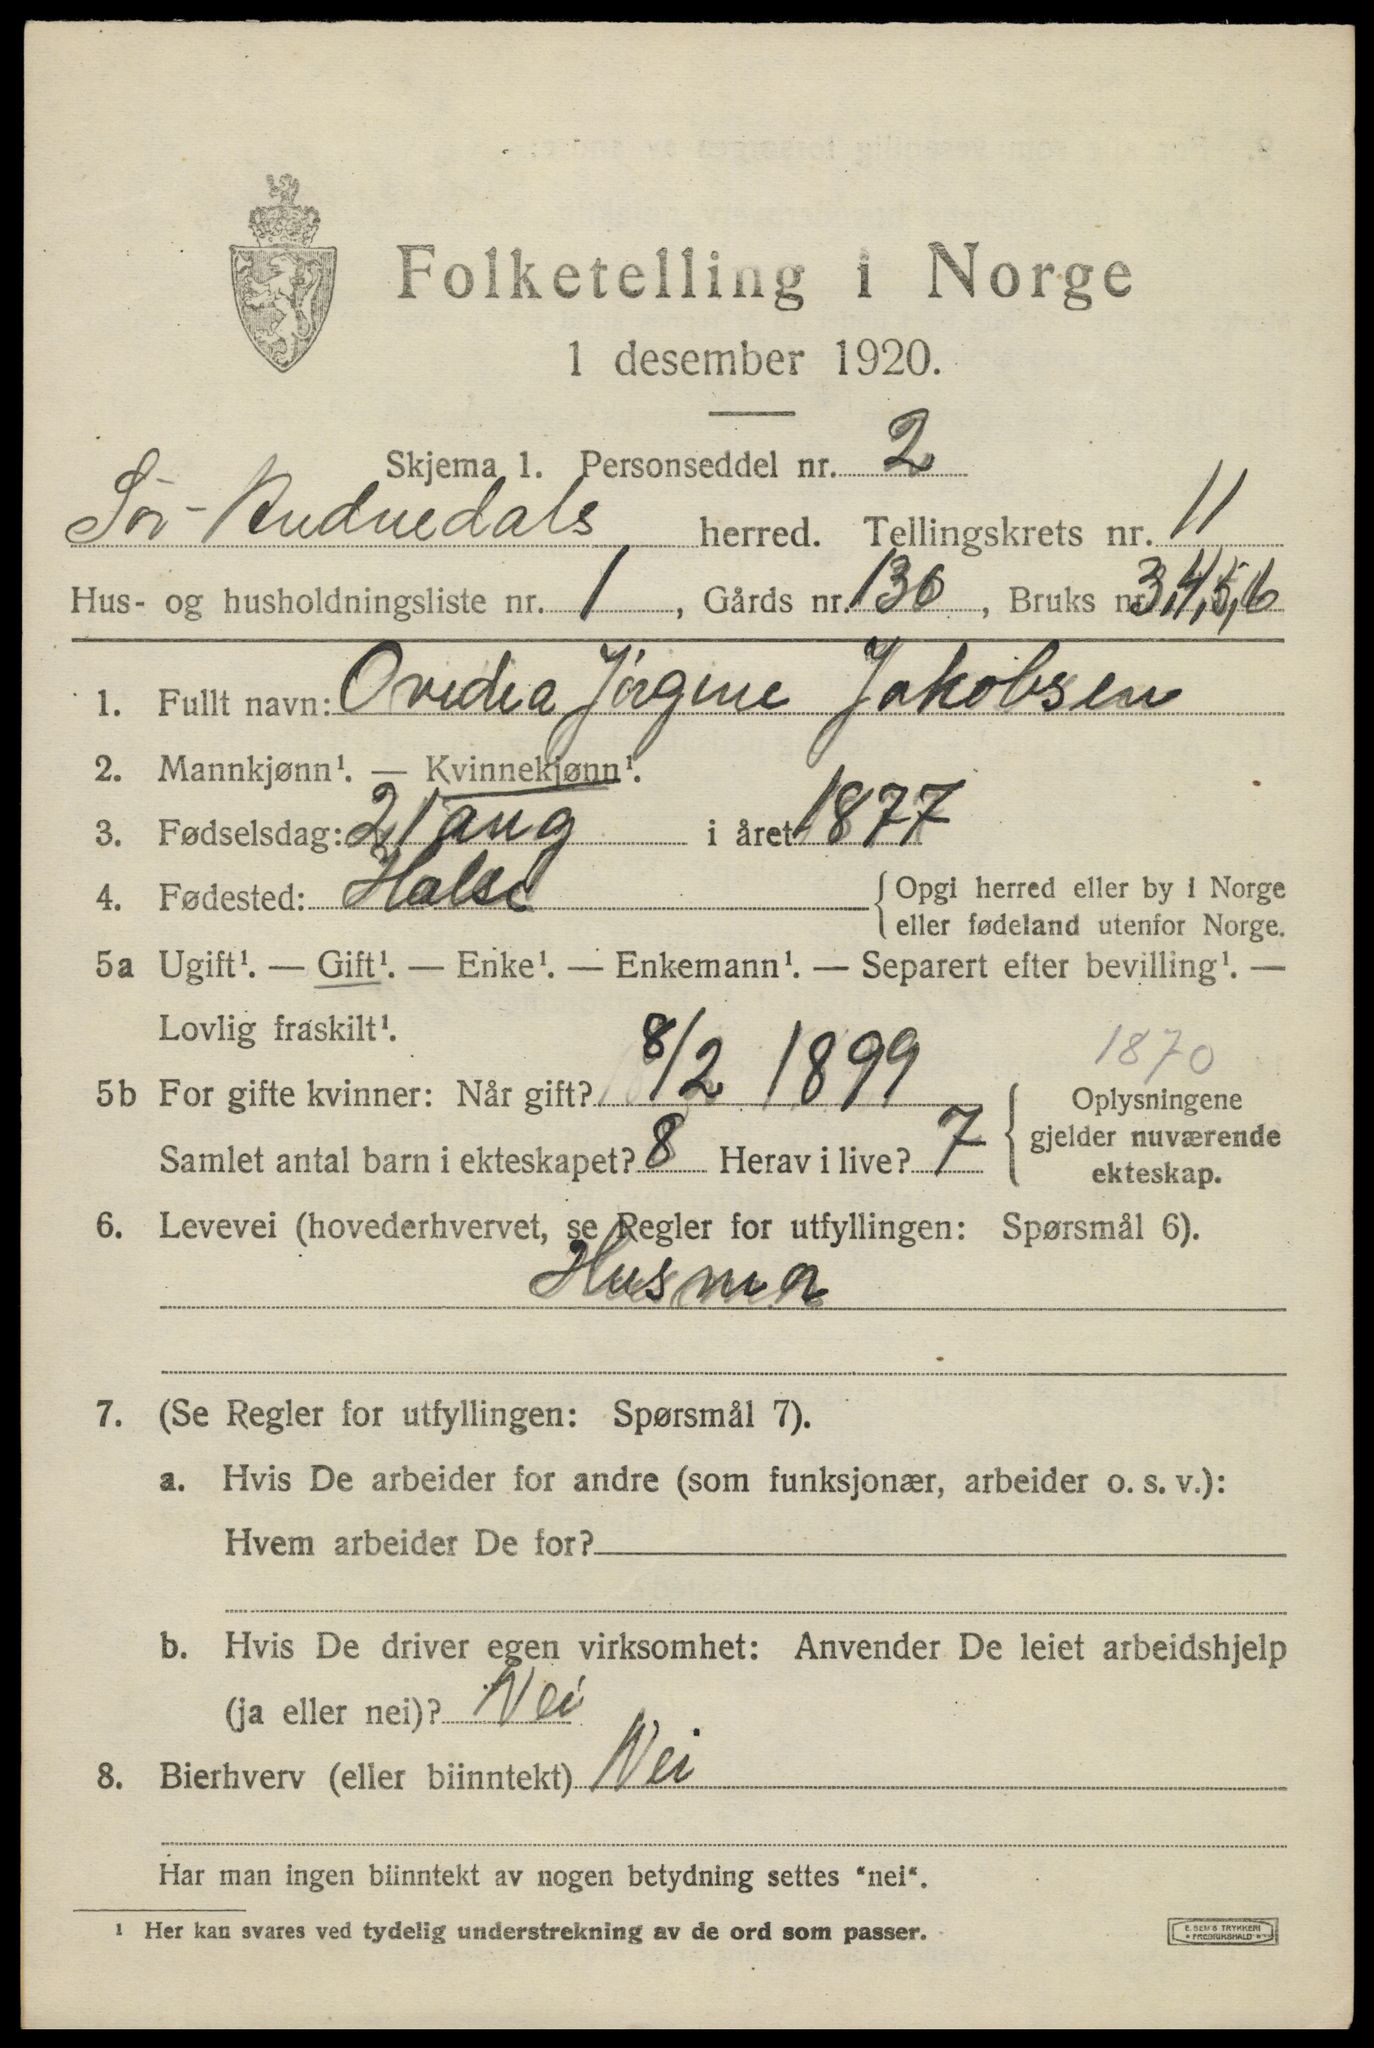 Folketelling i Norge
1 desember 1920.
Skjema 1. Personseddel nr. 2
Sör-Audnedals herred. Tellingskrets nr. 11
Hus- og husholdningsliste nr. 1, Gårds nr. 130, Bruks nr. 3,4,5,6
1. Fullt navn: Ovedia Jörgine Jakobsen
2. Mannkjønn¹. — Kvinnekjønn¹.
3. Fødselsdag: 21 aug i året 1877
4. Fødested: Halse {Opgi herred eller by i Norge
eller fødeland utenfor Norge.
5a Ugift¹. — Gift¹. — Enke¹. — Enkemann¹. — Separert efter bevilling¹. —
Lovlig fraskilt¹.
1870
5b For gifte kvinner: Når gift? 8/2 1899 { Oplysningene
gjelder nuværende
ekteskap.
Samlet antal barn i ekteskapet? 8 Herav i live? 7
6. Levevei (hovederhvervet, se Regler for utfyllingen: Spørsmål 6).
Husmor
7. (Se Regler for utfyllingen: Spørsmål 7).
a. Hvis De arbeider for andre (som funksjonær, arbeider o. s. v.):
Hvem arbeider De for?
b. Hvis De driver egen virksomhet: Anvender De leiet arbeidshjelp
(ja eller nei)? Nei
8. Bierhverv (eller biinntekt) Nei
Har man ingen biinntekt av nogen betydning settes "nei".
¹ Her kan svares ved tydelig understrekning av de ord som passer.
E. SEM'S TRYKKERI
FREDRIKSHALD